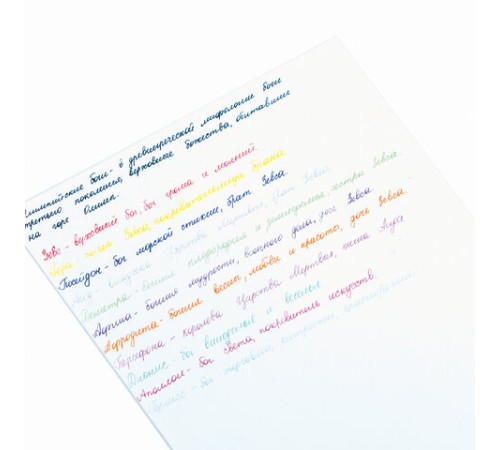 Олимпийские боги - в древнегреческой мифологии боги
третьего поколения, верховные божества, обитавшие
на горе Олимп.
Зевс - верховный бог, бог грома и молний.
Гера - жена Зевса, покровительница брака
Посейдон - бог морской стихии, брат Зевса.
Аид - владыка Царства Мертвых, брат Зевса.
Деметра - богиня плодородия и земледелия, сестра Зевса.
Афина - богиня мудрости, военного дела, дочь Зевса.
Афродита - богиня весны, любви и красоты, дочь Зевса.
Персефона - королева Царства Мертвых, жена Аида
Дионис - бог виноделия и веселья
Аполлон - бог света, покровитель искусств
Гермес - бог торговли, хитрости,